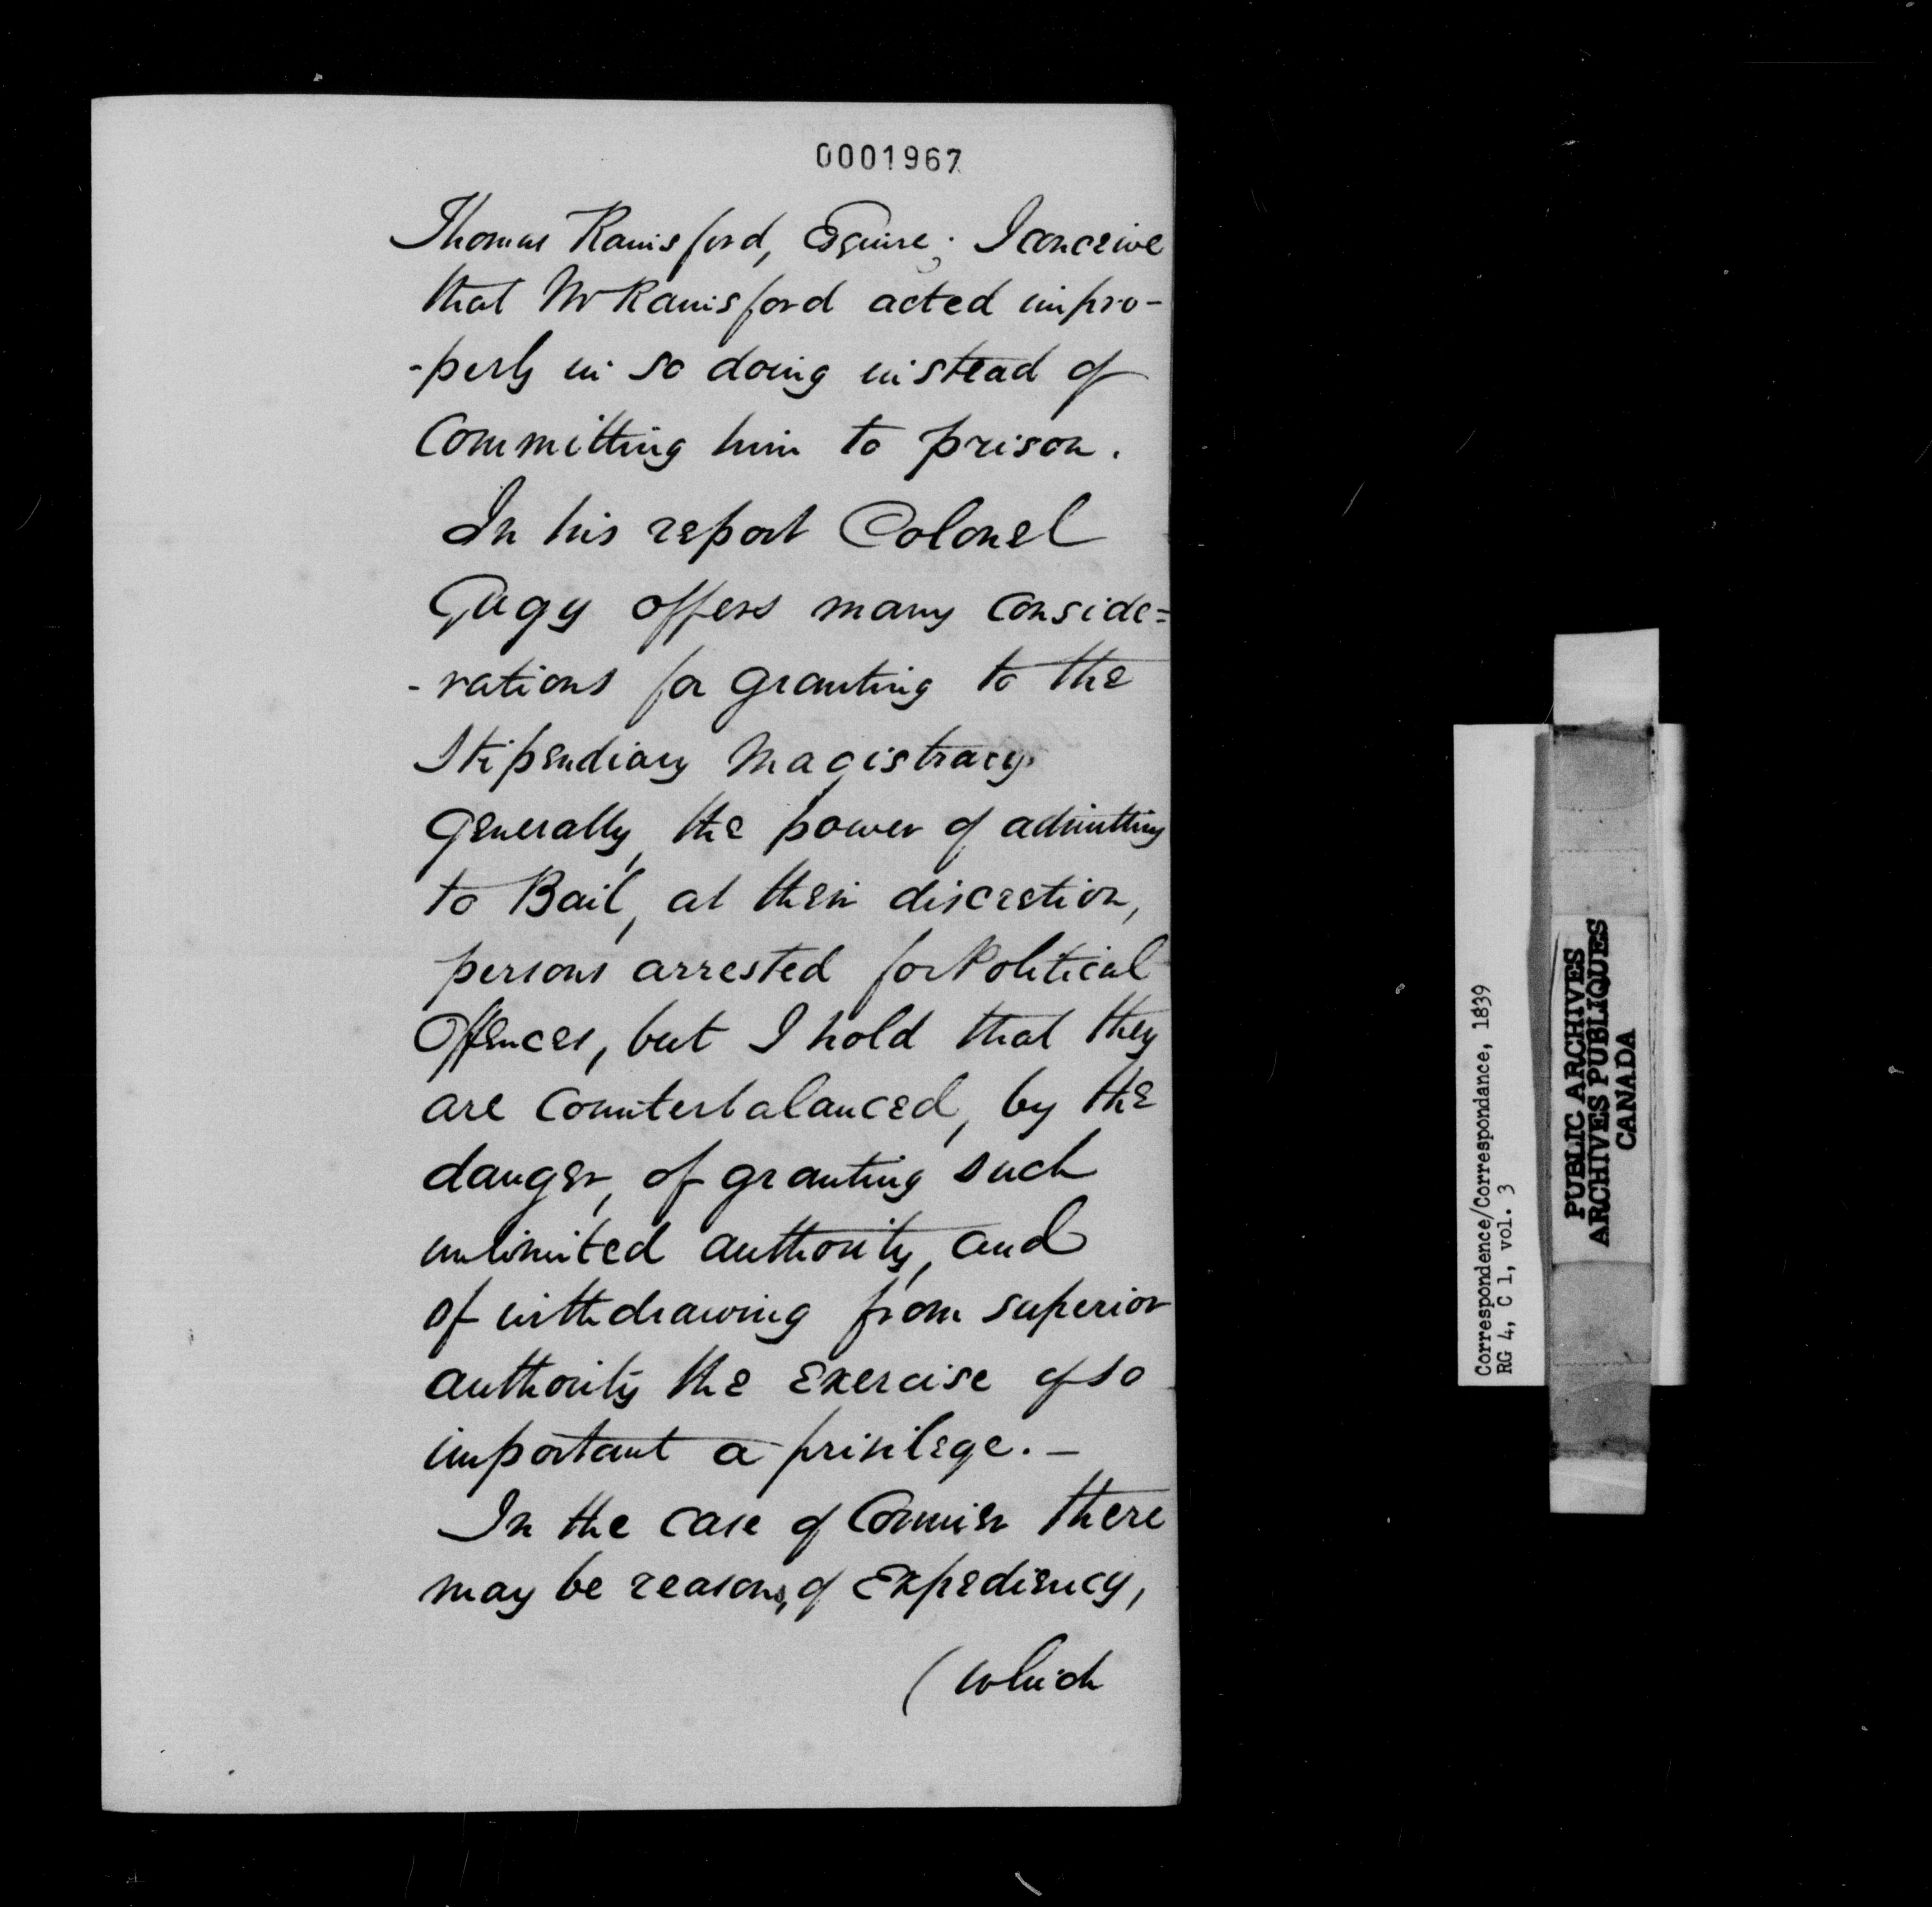 0001967
Thomas Rainsford, Esquire; I conceive
that Mr Rainsford acted impro-
-perly in so doing instead of
Committing him to prison.
In his report Colonel
Gugy offers many conside=
-rations for granting to the
Stipendiary Magistracy
Generally, the power of admitting
to Bail, at their discretion,
persons arrested for Political
Offences, but I hold that they
are Counterbalanced, by the
danger, of granting such
unlimited authority, and
of withdrawing from superior
authority the exercise of so
important a privilege. –
In the case of Cormier there
may be reasons, of Expediency,
(which
Correspondence/Correspondance, 1839
RG 4, C 1, vol. 3
PUBLIC ARCHIVES
ARCHIVES PUBLIQUES
CANADA